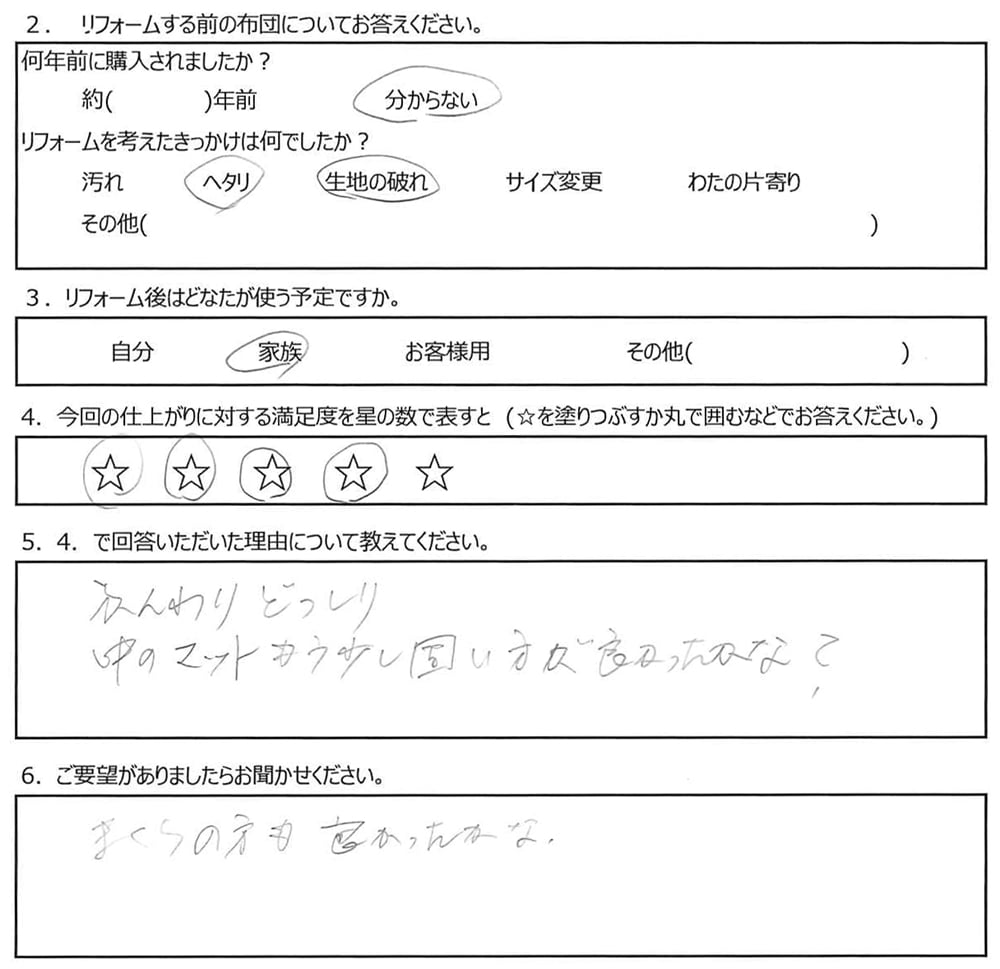 ２． リフォームする前の布団についてお答えください。
何年前に購入されましたか？
約( )年前 分からない
リフォームを考えたきっかけは何でしたか？
汚れ ヘタリ 生地の破れ サイズ変更 わたの片寄り
その他( )
３．リフォーム後はどなたが使う予定ですか。
自分 家族 お客様用 その他( )
４．今回の仕上がりに対する満足度を星の数で表すと（☆を塗りつぶすか丸で囲むなどでお答えください。）
☆ ☆ ☆ ☆ ☆
５．４．で回答いただいた理由について教えてください。
ふんわり どっしり
中のマットもう少し固い方が良かったかな？
６．ご要望がありましたらお聞かせください。
まくらの方も良かったかな．